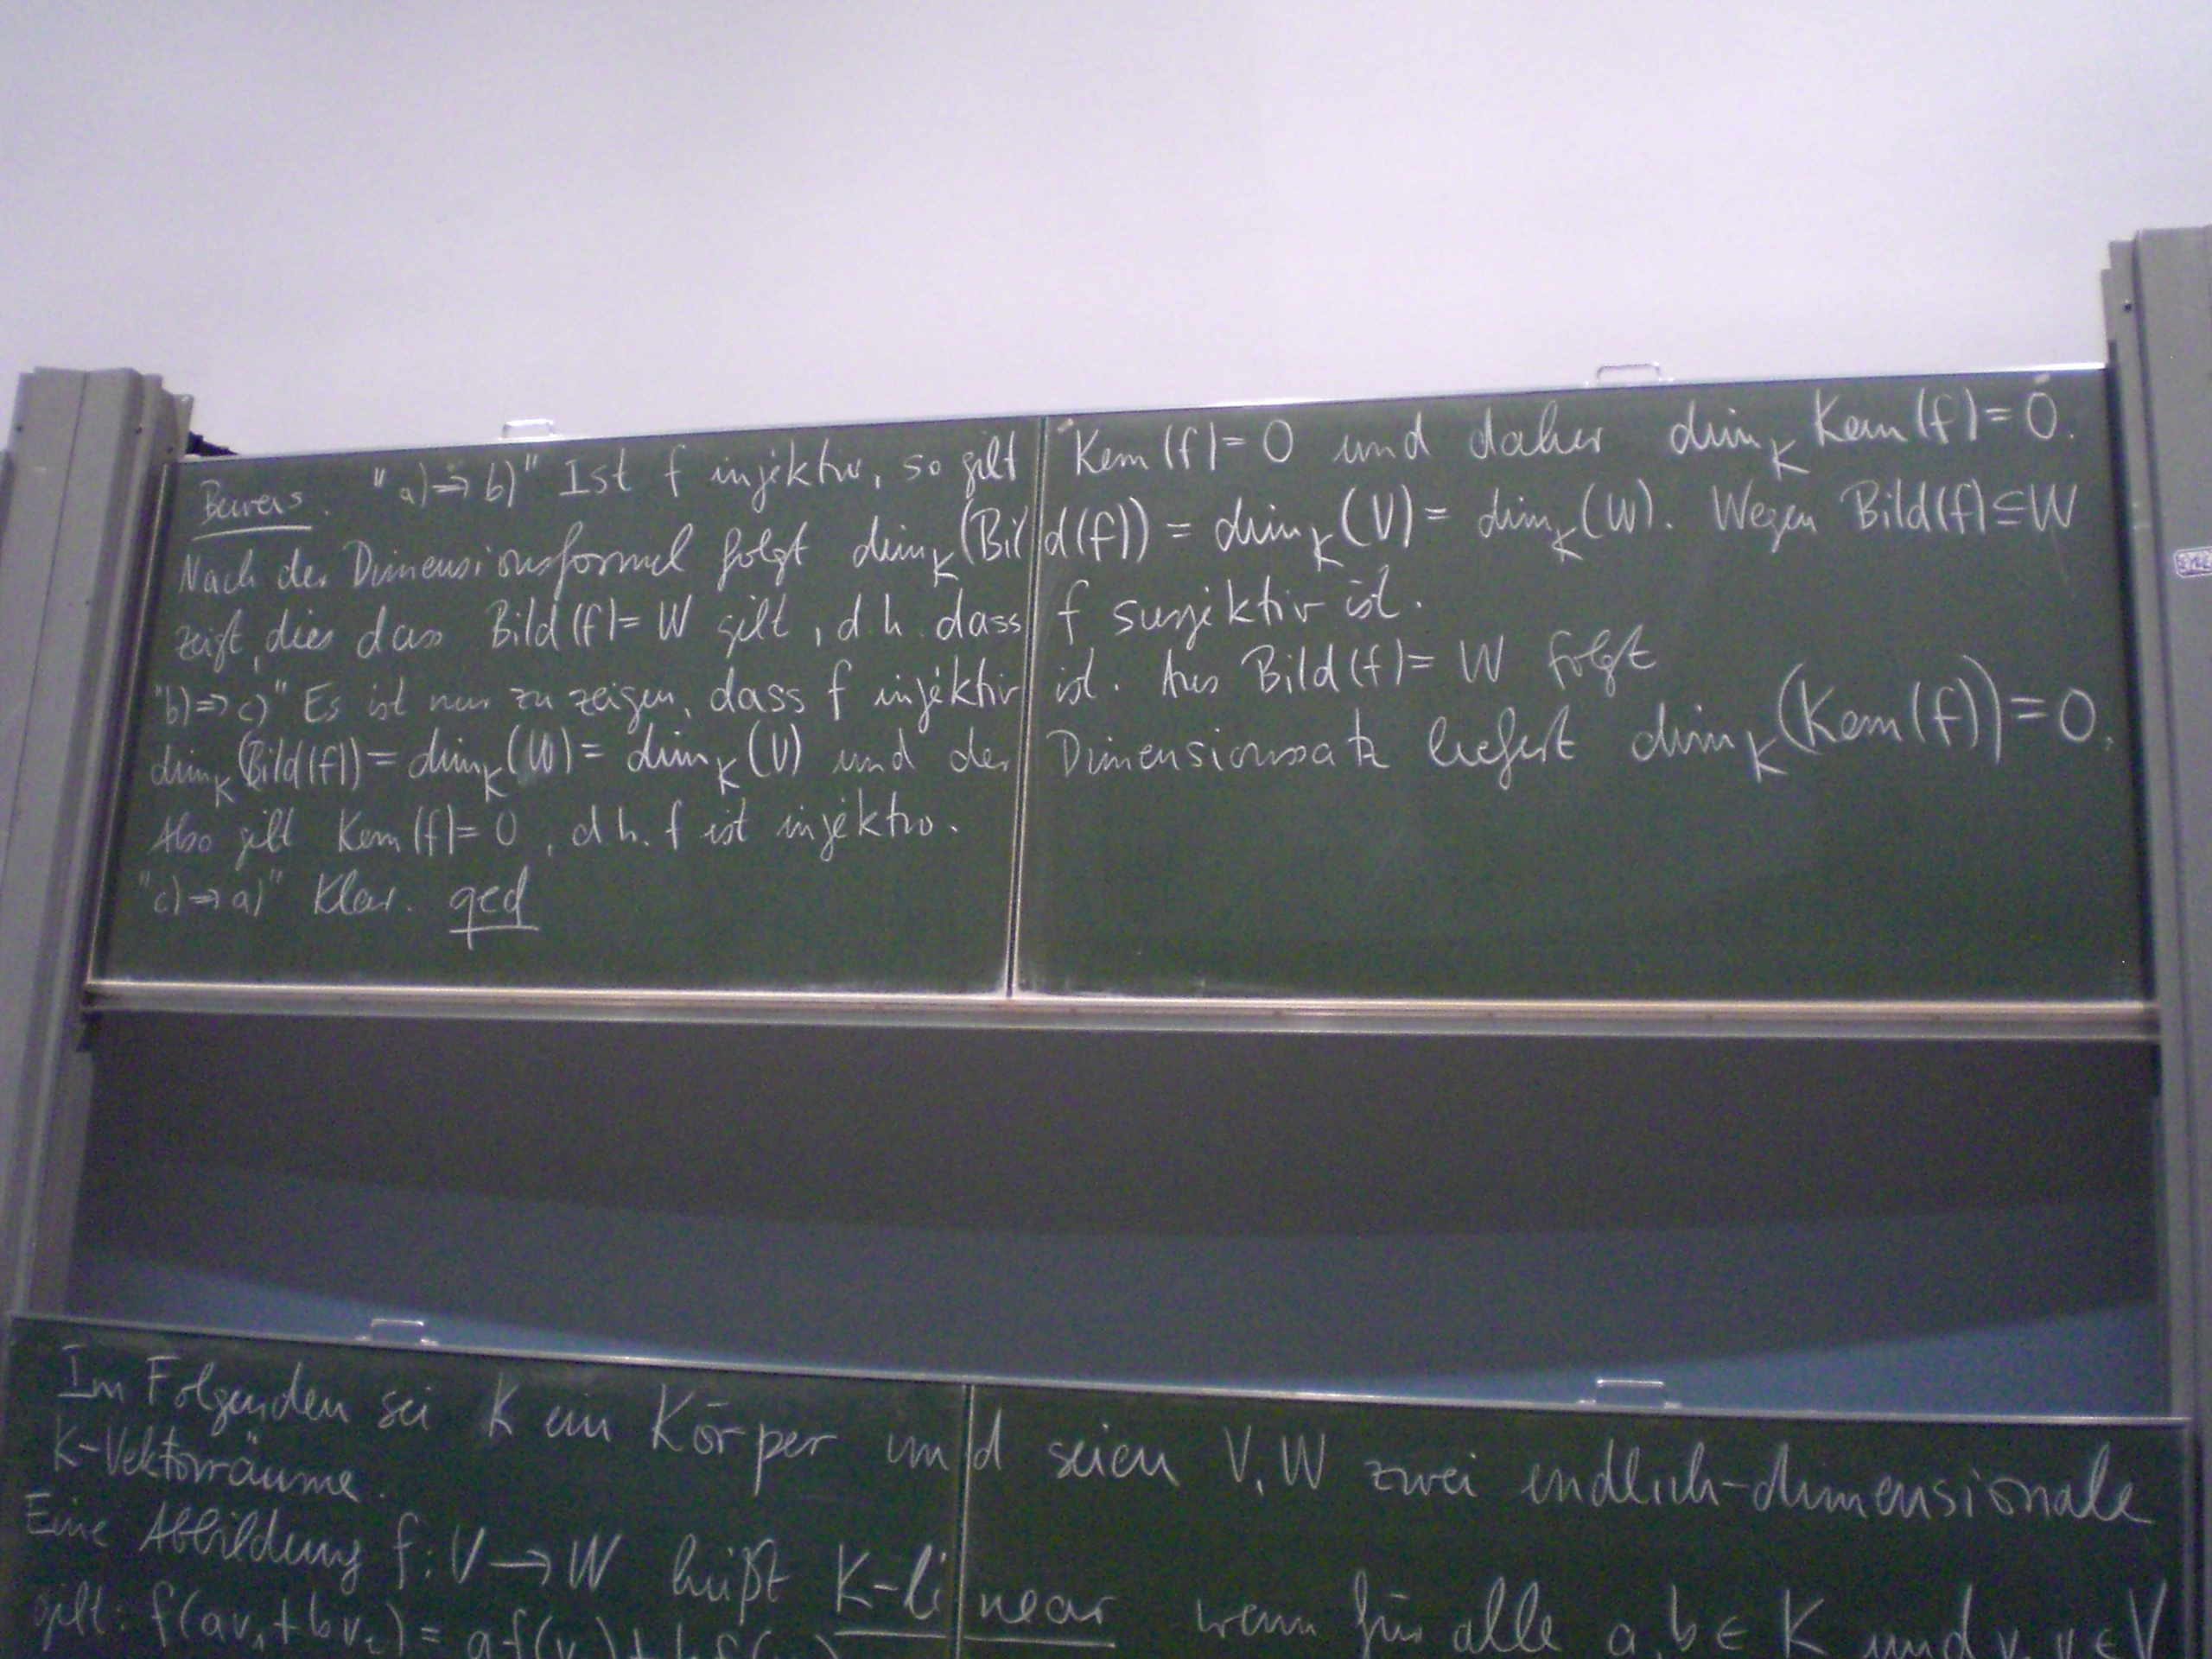 Beweis. "a) ⇒ b)" Ist f injektiv, so gilt Kern(f) = 0 und daher dim_K Kern(f) = 0.
Nach der Dimensionsformel folgt dim_K(Bild(f)) = dim_K(V) = dim_K(W). Wegen Bild(f) ⊆ W
zeigt dies das Bild(f) = W gilt, d.h. dass f surjektiv ist.
"b) ⇒ c)" Es ist nur zu zeigen, dass f injektiv ist. Aus Bild(f) = W folgt
dim_K(Bild(f)) = dim_K(W) = dim_K(V) und der Dimensionssatz liefert dim_K(Kern(f)) = 0.
Also gilt Kern(f) = 0, d.h. f ist injektiv.
"c) ⇒ a)" Klar. qed
Im Folgenden sei K ein Körper und seien V, W zwei endlich-dimensionale
K-Vektorräume.
Eine Abbildung f: V → W heißt K-linear wenn für alle a, b ∈ K und v, v ∈ V
gilt: f(av₁ + bv₂) = af(v₁) + bf(